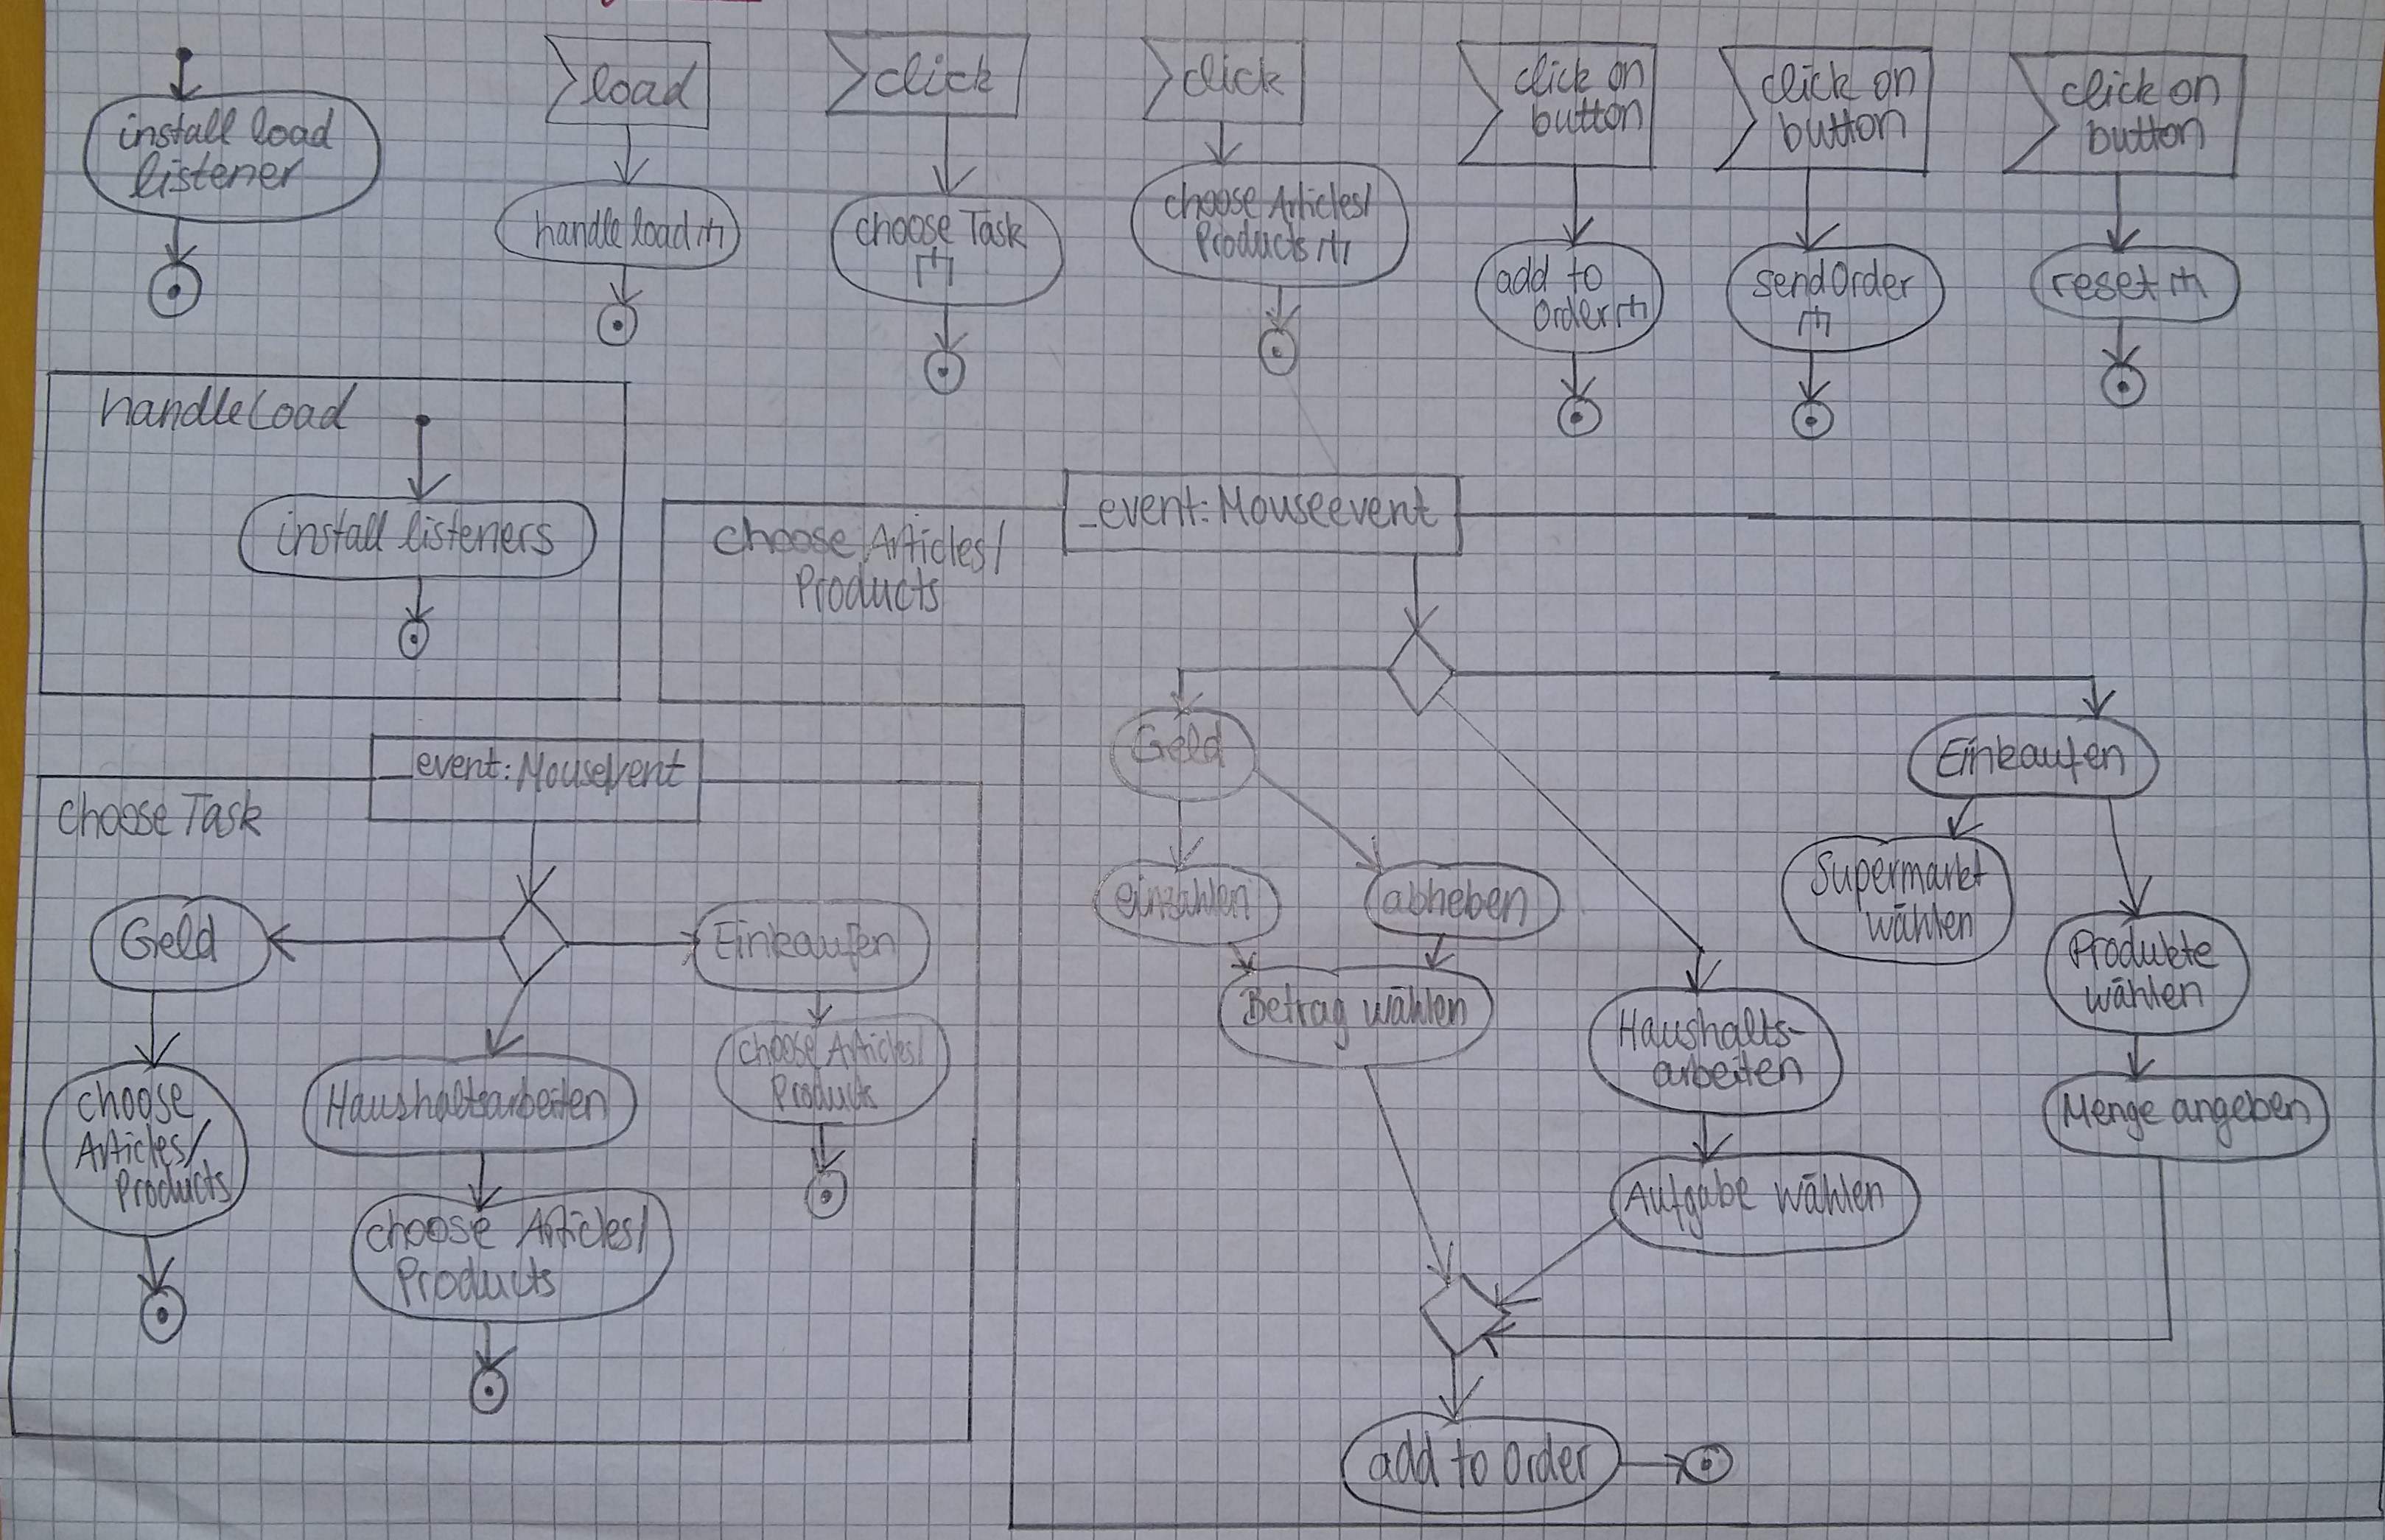 install load
listener
load
handle load
click
choose Task
click
choose Articles/
Products
click on
button
add to
Order
click on
button
sendOrder
click on
button
reset
handleLoad
install listeners
choose Articles/
Products
_event: Mouseevent
Geld
einzahlen
abheben
Betrag wählen
Haushalts-
arbeiten
Aufgabe wählen
Einkaufen
Supermarkt
wählen
Produkte
wählen
Menge angeben
add to Order
choose Task
_event: Mousevent
Geld
choose
Articles/
Products
Haushaltsarbeiten
choose Articles/
Products
Einkaufen
choose Articles/
Products